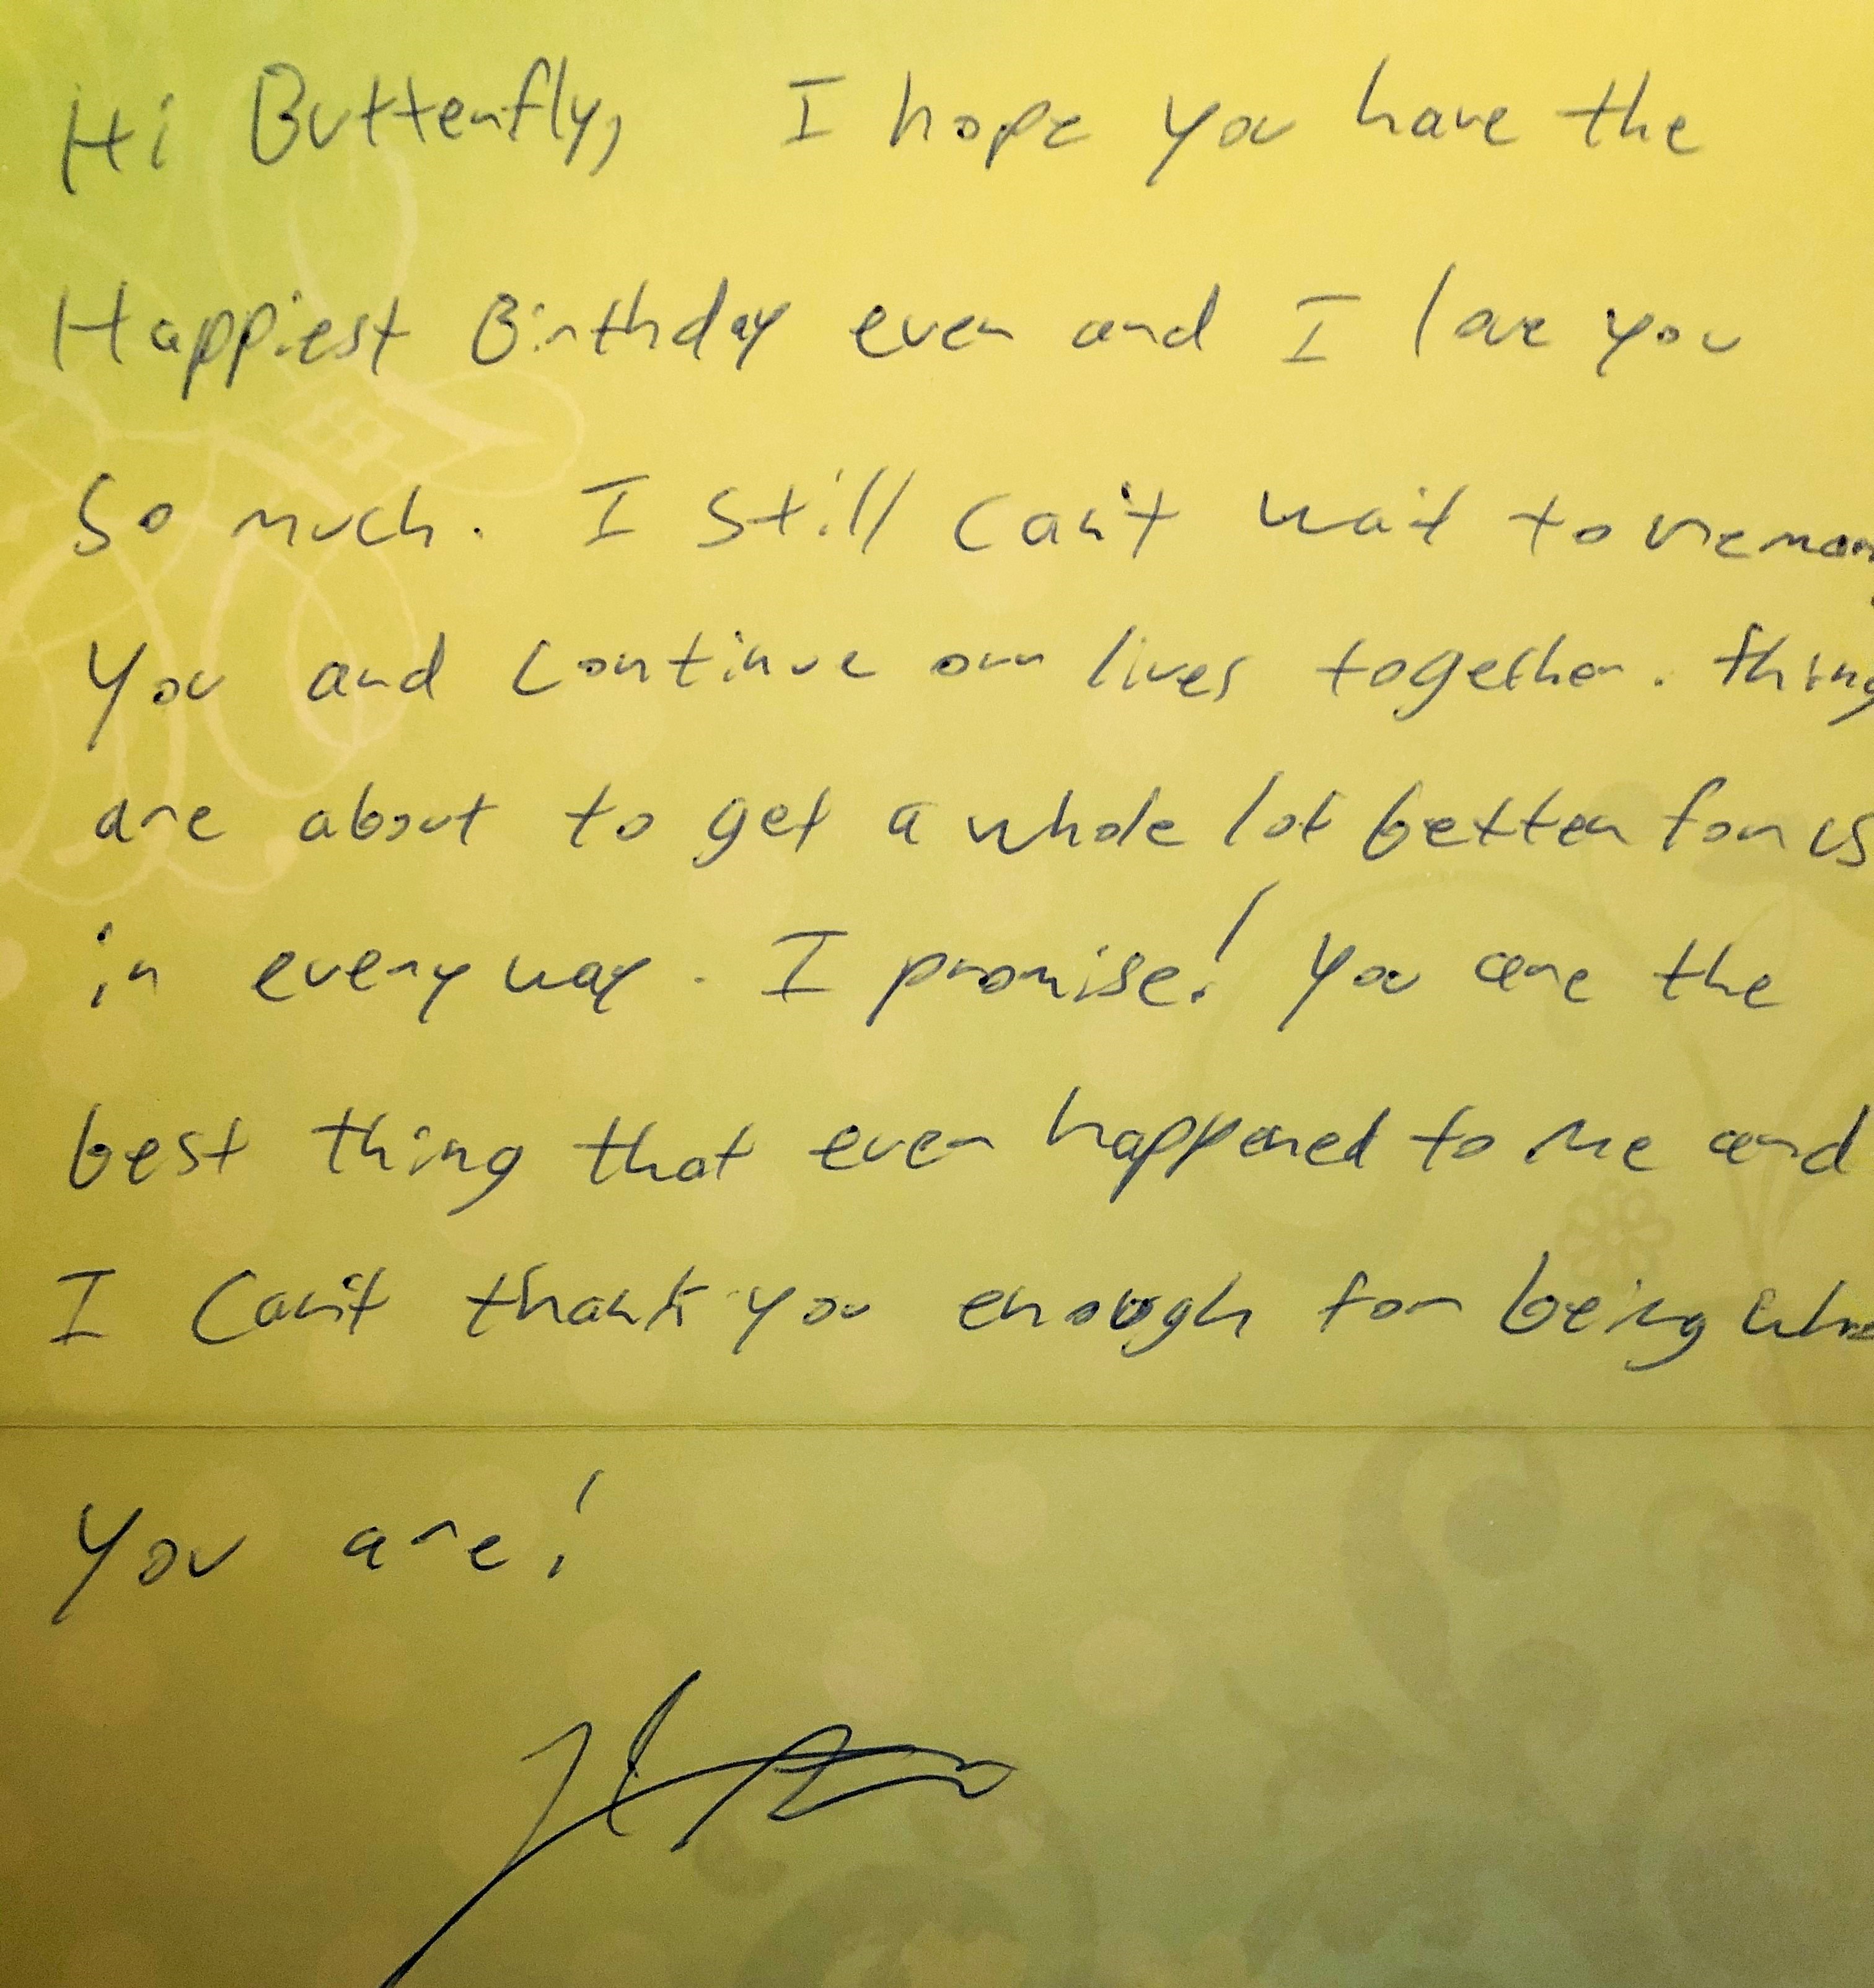 Hi Butterfly, I hope you have the
Happiest Birthday ever and I love you
So much. I still can't wait to remar
you and continue our lives together. thing
are about to get a whole lot better for us
in every way. I promise! You are the
best thing that ever happened to me and
I can't thank you enough for being who
You are!